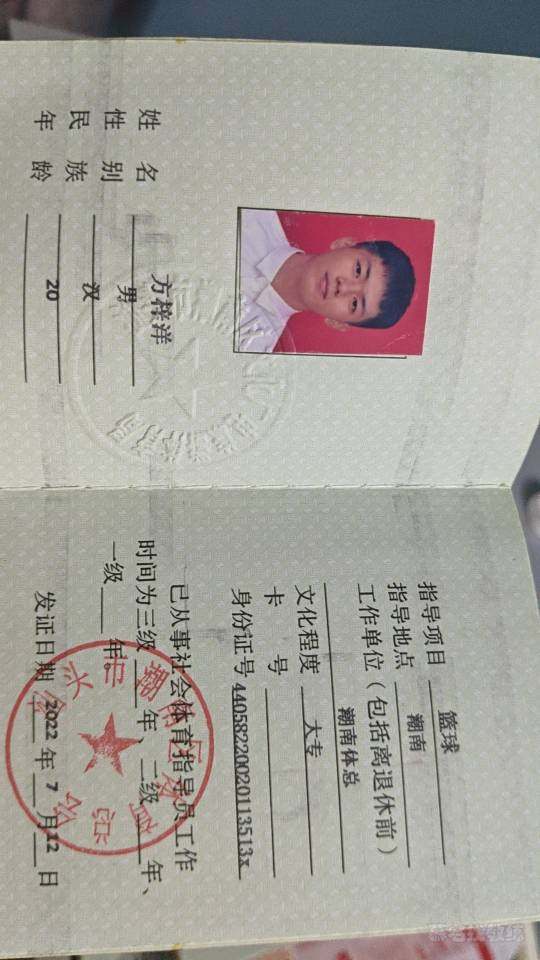 姓名 方梓洋
性别 男
民族 汉
年龄 20
指导项目 篮球
指导地点 潮南
工作单位(包括离退休前)
潮南体总
文化程度 大专
卡号
身份证号 44058220020113513x
已从事社会体育指导员工作
时间为三级 年、二级 年、
一级 年。
发证日期 2022 年 7 月 12 日